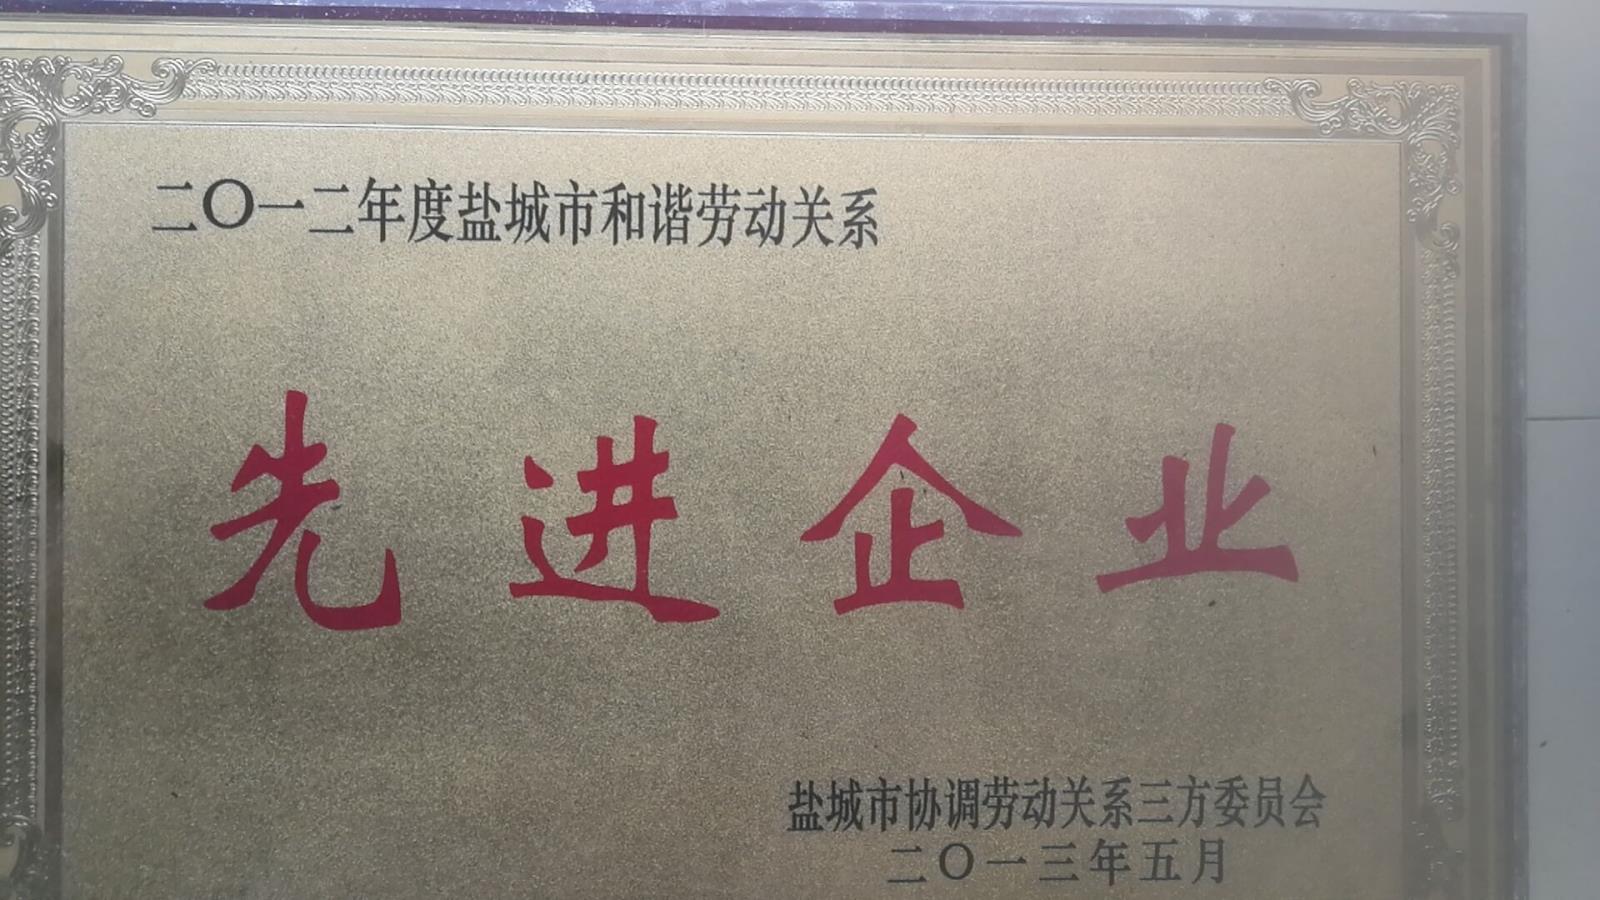 二〇一二年度盐城市和谐劳动关系
先进企业
盐城市协调劳动关系三方委员会
二〇一三年五月